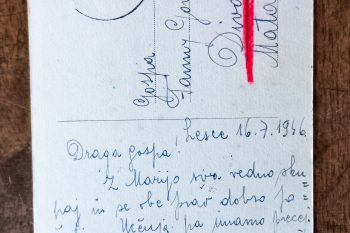 Gospa
Fanny
Diva
Mata
Lesce 16.7.1946.
Draga gospa!
Z Marijo sva vedno sku=
paj in se obe prav dobro po=
Učenja pa imamo precej